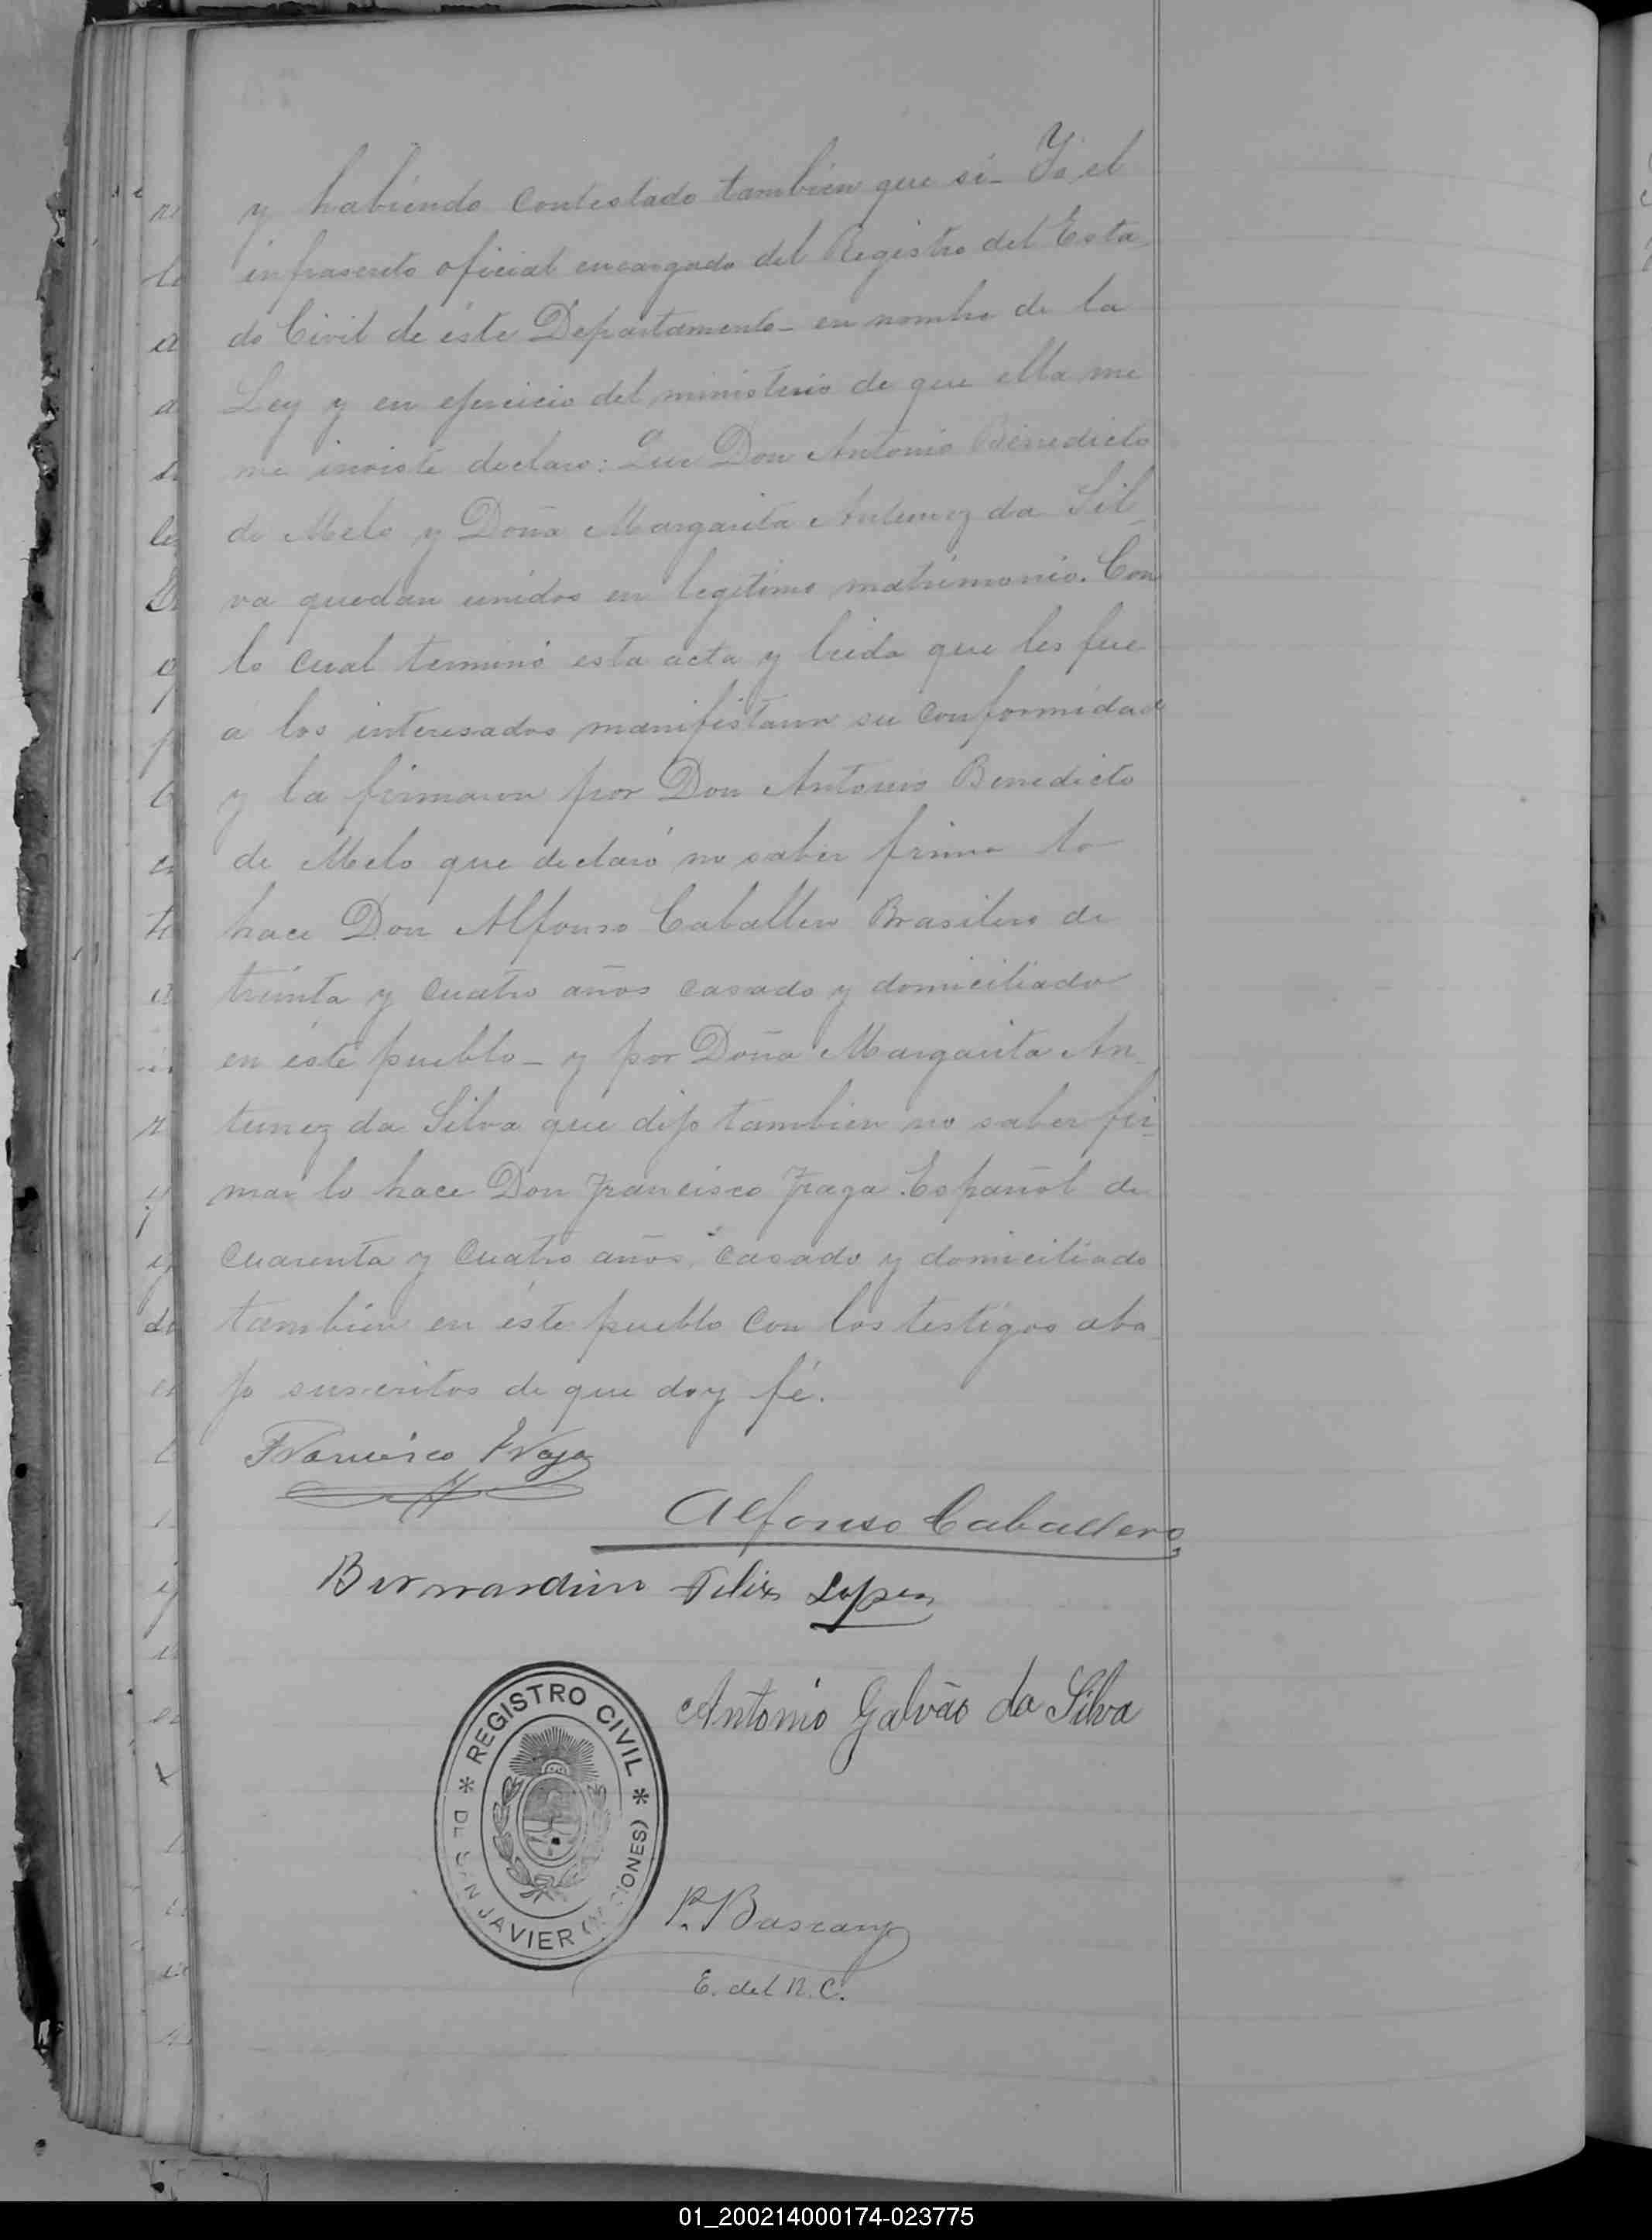 y habiendo contestado tambien que sí_ Yo el
infrascrito oficial encargado del Registro del Esta
do Civil de éste Departamento_ en nombre de la
Ley y en ejercicio del ministerio de que ella me
me inviste declaro: Que Don Antonio Benedicto
de Melo y Doña Margarita Antunez da Sil_
va quedan unidos en legitimo matrimonio. Con
lo cual terminó esta acta y leida que les fue
á los interesados manifestaron su conformidad
y la firmaron por Don Antonio Benedicto
de Melo que declaró no saber firmar lo
hace Don Alfonso Caballero Brasilero de
treinta y cuatro años casado y domiciliado
en éste pueblo_ y por Doña Margarita An_
tunez da Silva que dijo tambien no saber fir_
mar lo hace Don Francisco Fraga Español de
cuarenta y cuatro años casado y domiciliado
tambien en éste pueblo con los testigos aba
jo suscritos de que doy fé.
Francisco Fraga
Alfonso Caballero
Bernardino Felix Lopes
Antonio Galvão da Silva
* REGISTRO CIVIL *
DE SAN JAVIER (MISIONES)
P. Bascary
E. del R. C.
01_200214000174-023775